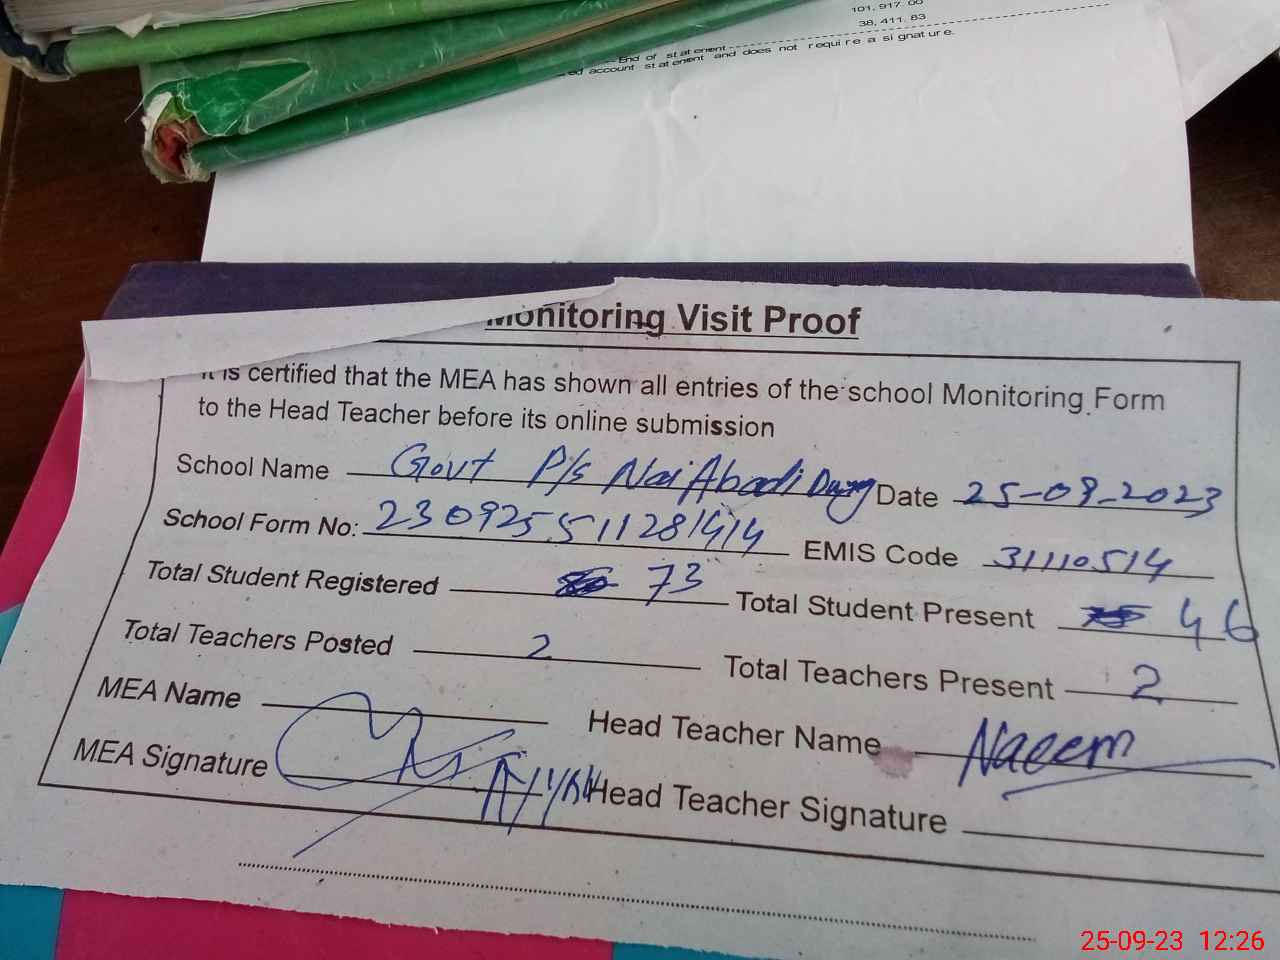 101,917.00
38,411.83
End of statement
ed account statement and does not require a signature.
Monitoring Visit Proof
It is certified that the MEA has shown all entries of the school Monitoring Form
to the Head Teacher before its online submission
School Name Govt P/s Nai Abadi Date 25-09-2023
School Form No: 230925511281414 EMIS Code 31110514
Total Student Registered 73 Total Student Present 46
Total Teachers Posted 2 Total Teachers Present 2
MEA Name Head Teacher Name Naeem
MEA Signature Head Teacher Signature
25-09-23 12:26